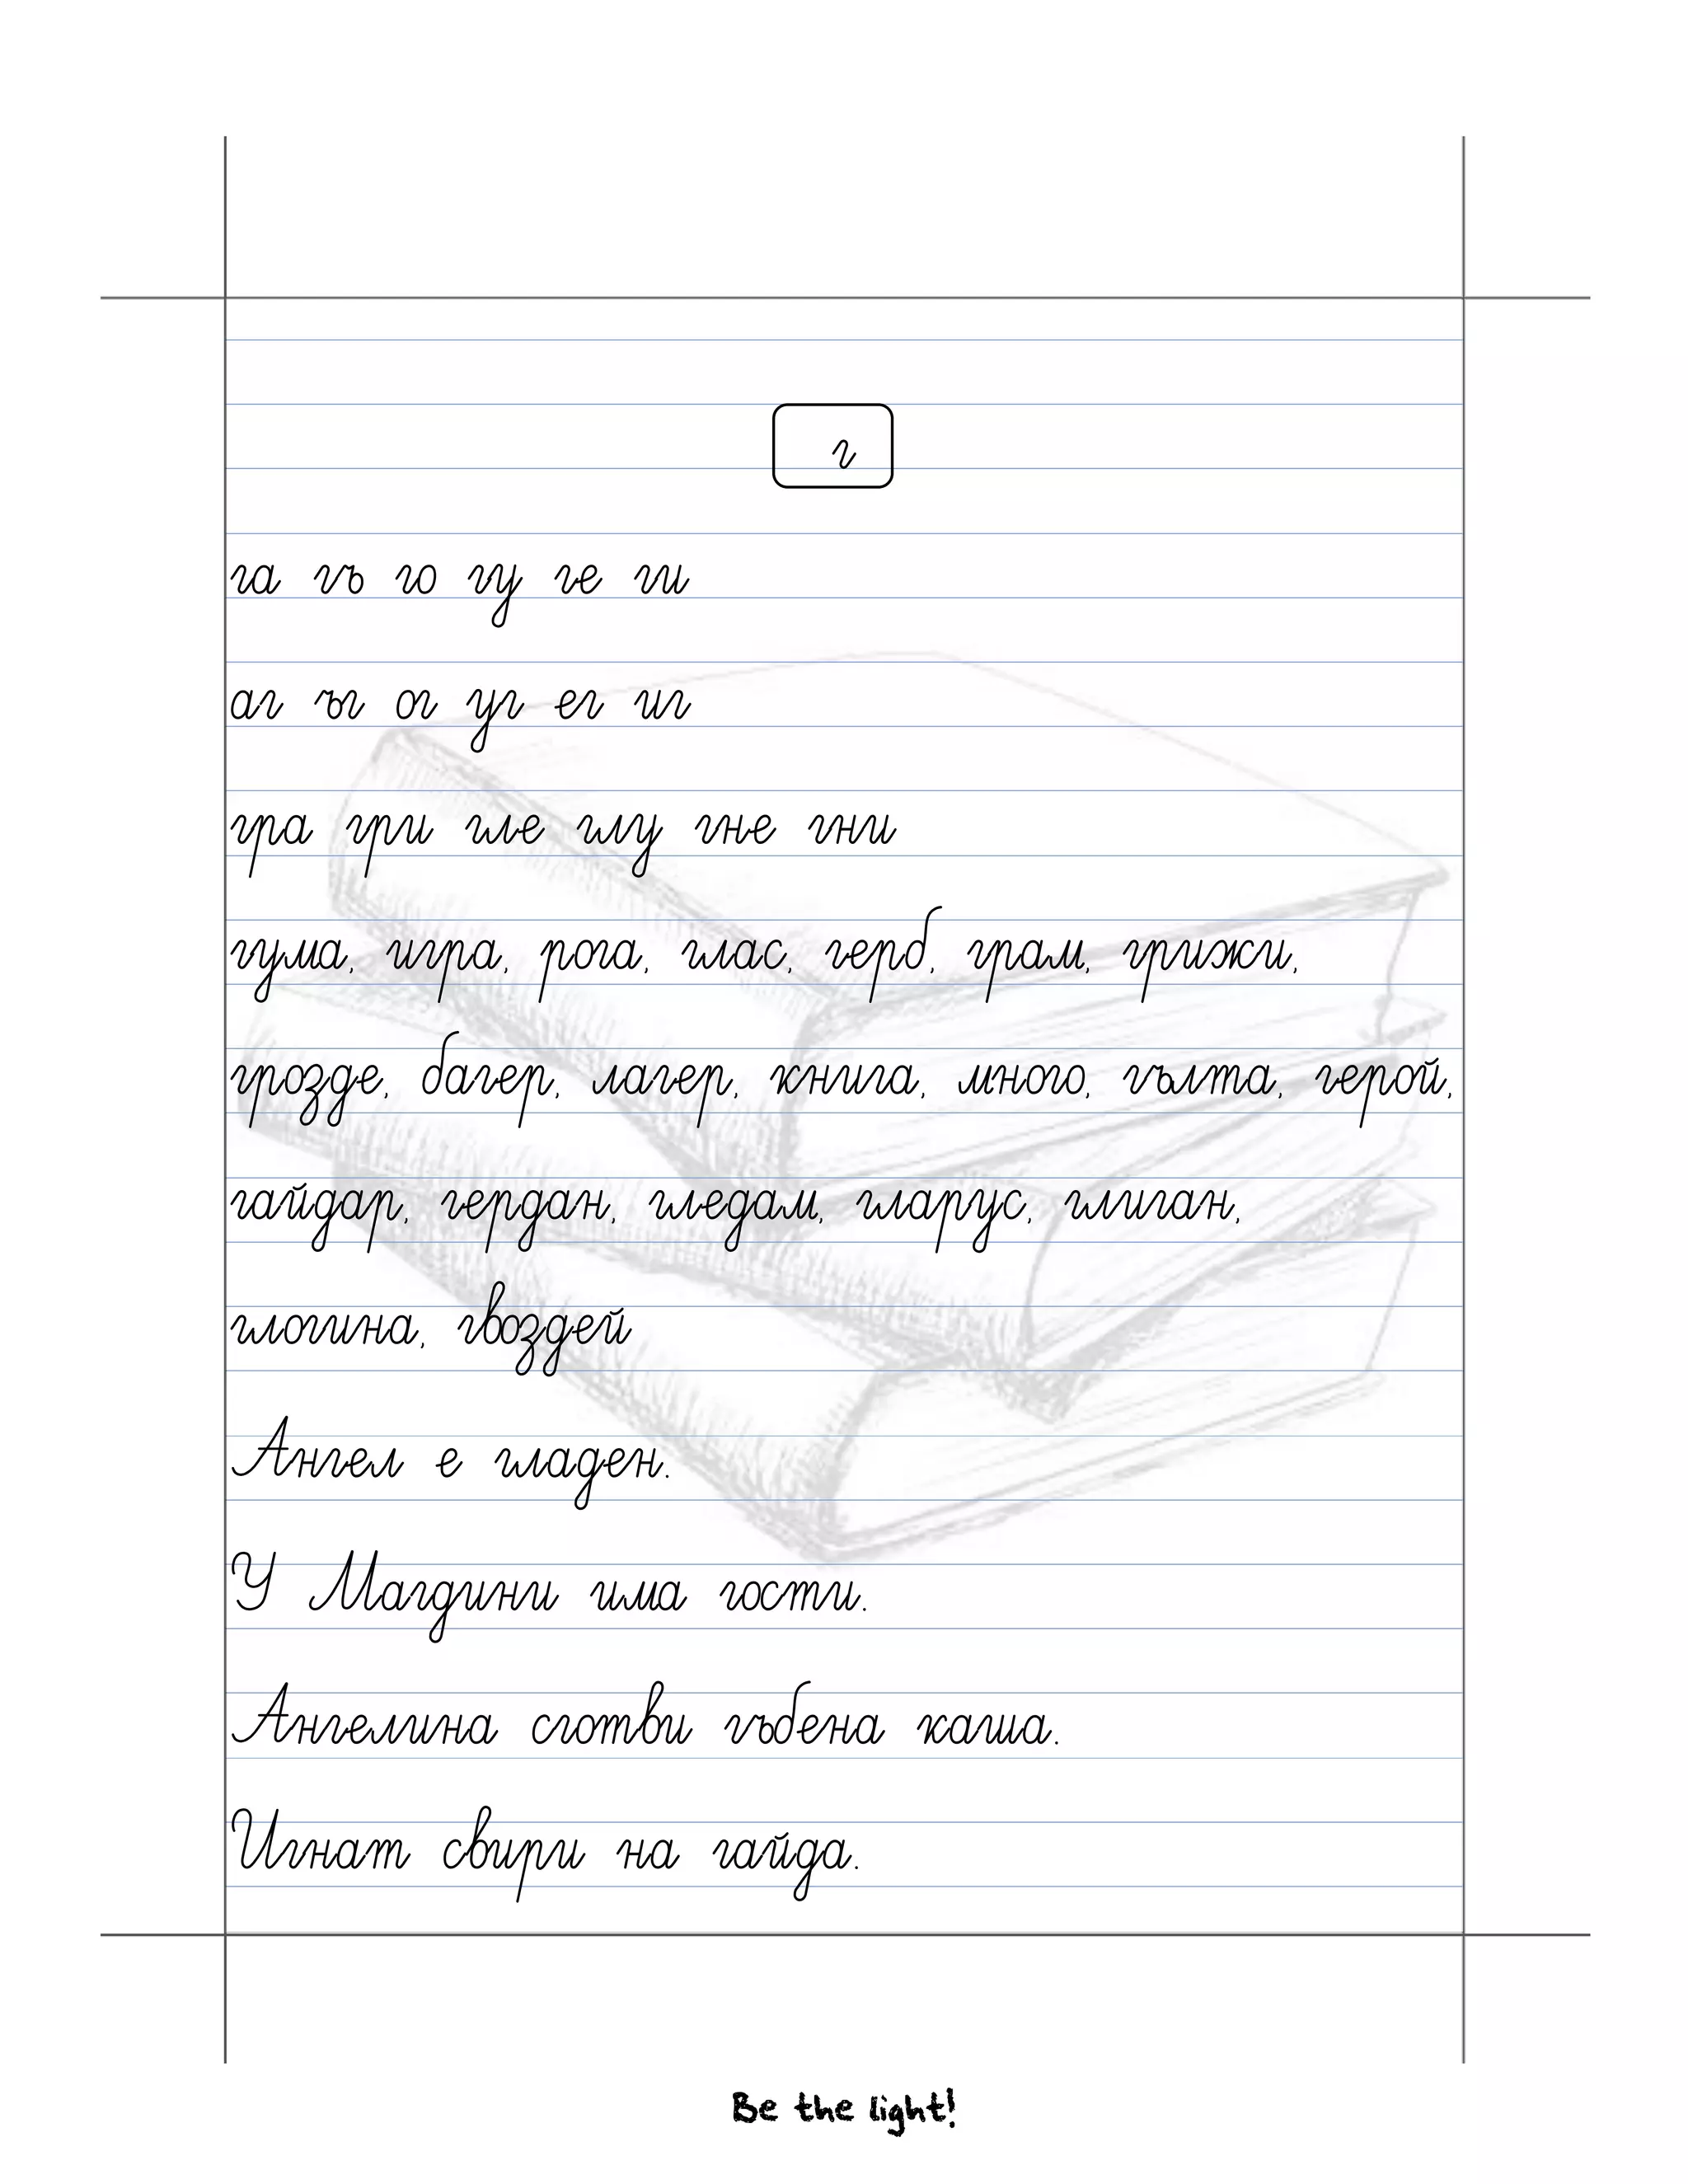 г
га гъ го гу ге ги
аг ъг ог уг ег иг
гра гри гле глу гне гни
гума, игра, рога, глас, герб, грам, грижи,
грозде, багер, лагер, книга, много, гълта, герой,
гайдар, гердан, гледам, гларус, глиган,
глогина, гвоздей
Ангел е гладен.
У Магдини има гости.
Ангелина сготви гъбена каша.
Игнат свири на гайда.
Be the light!